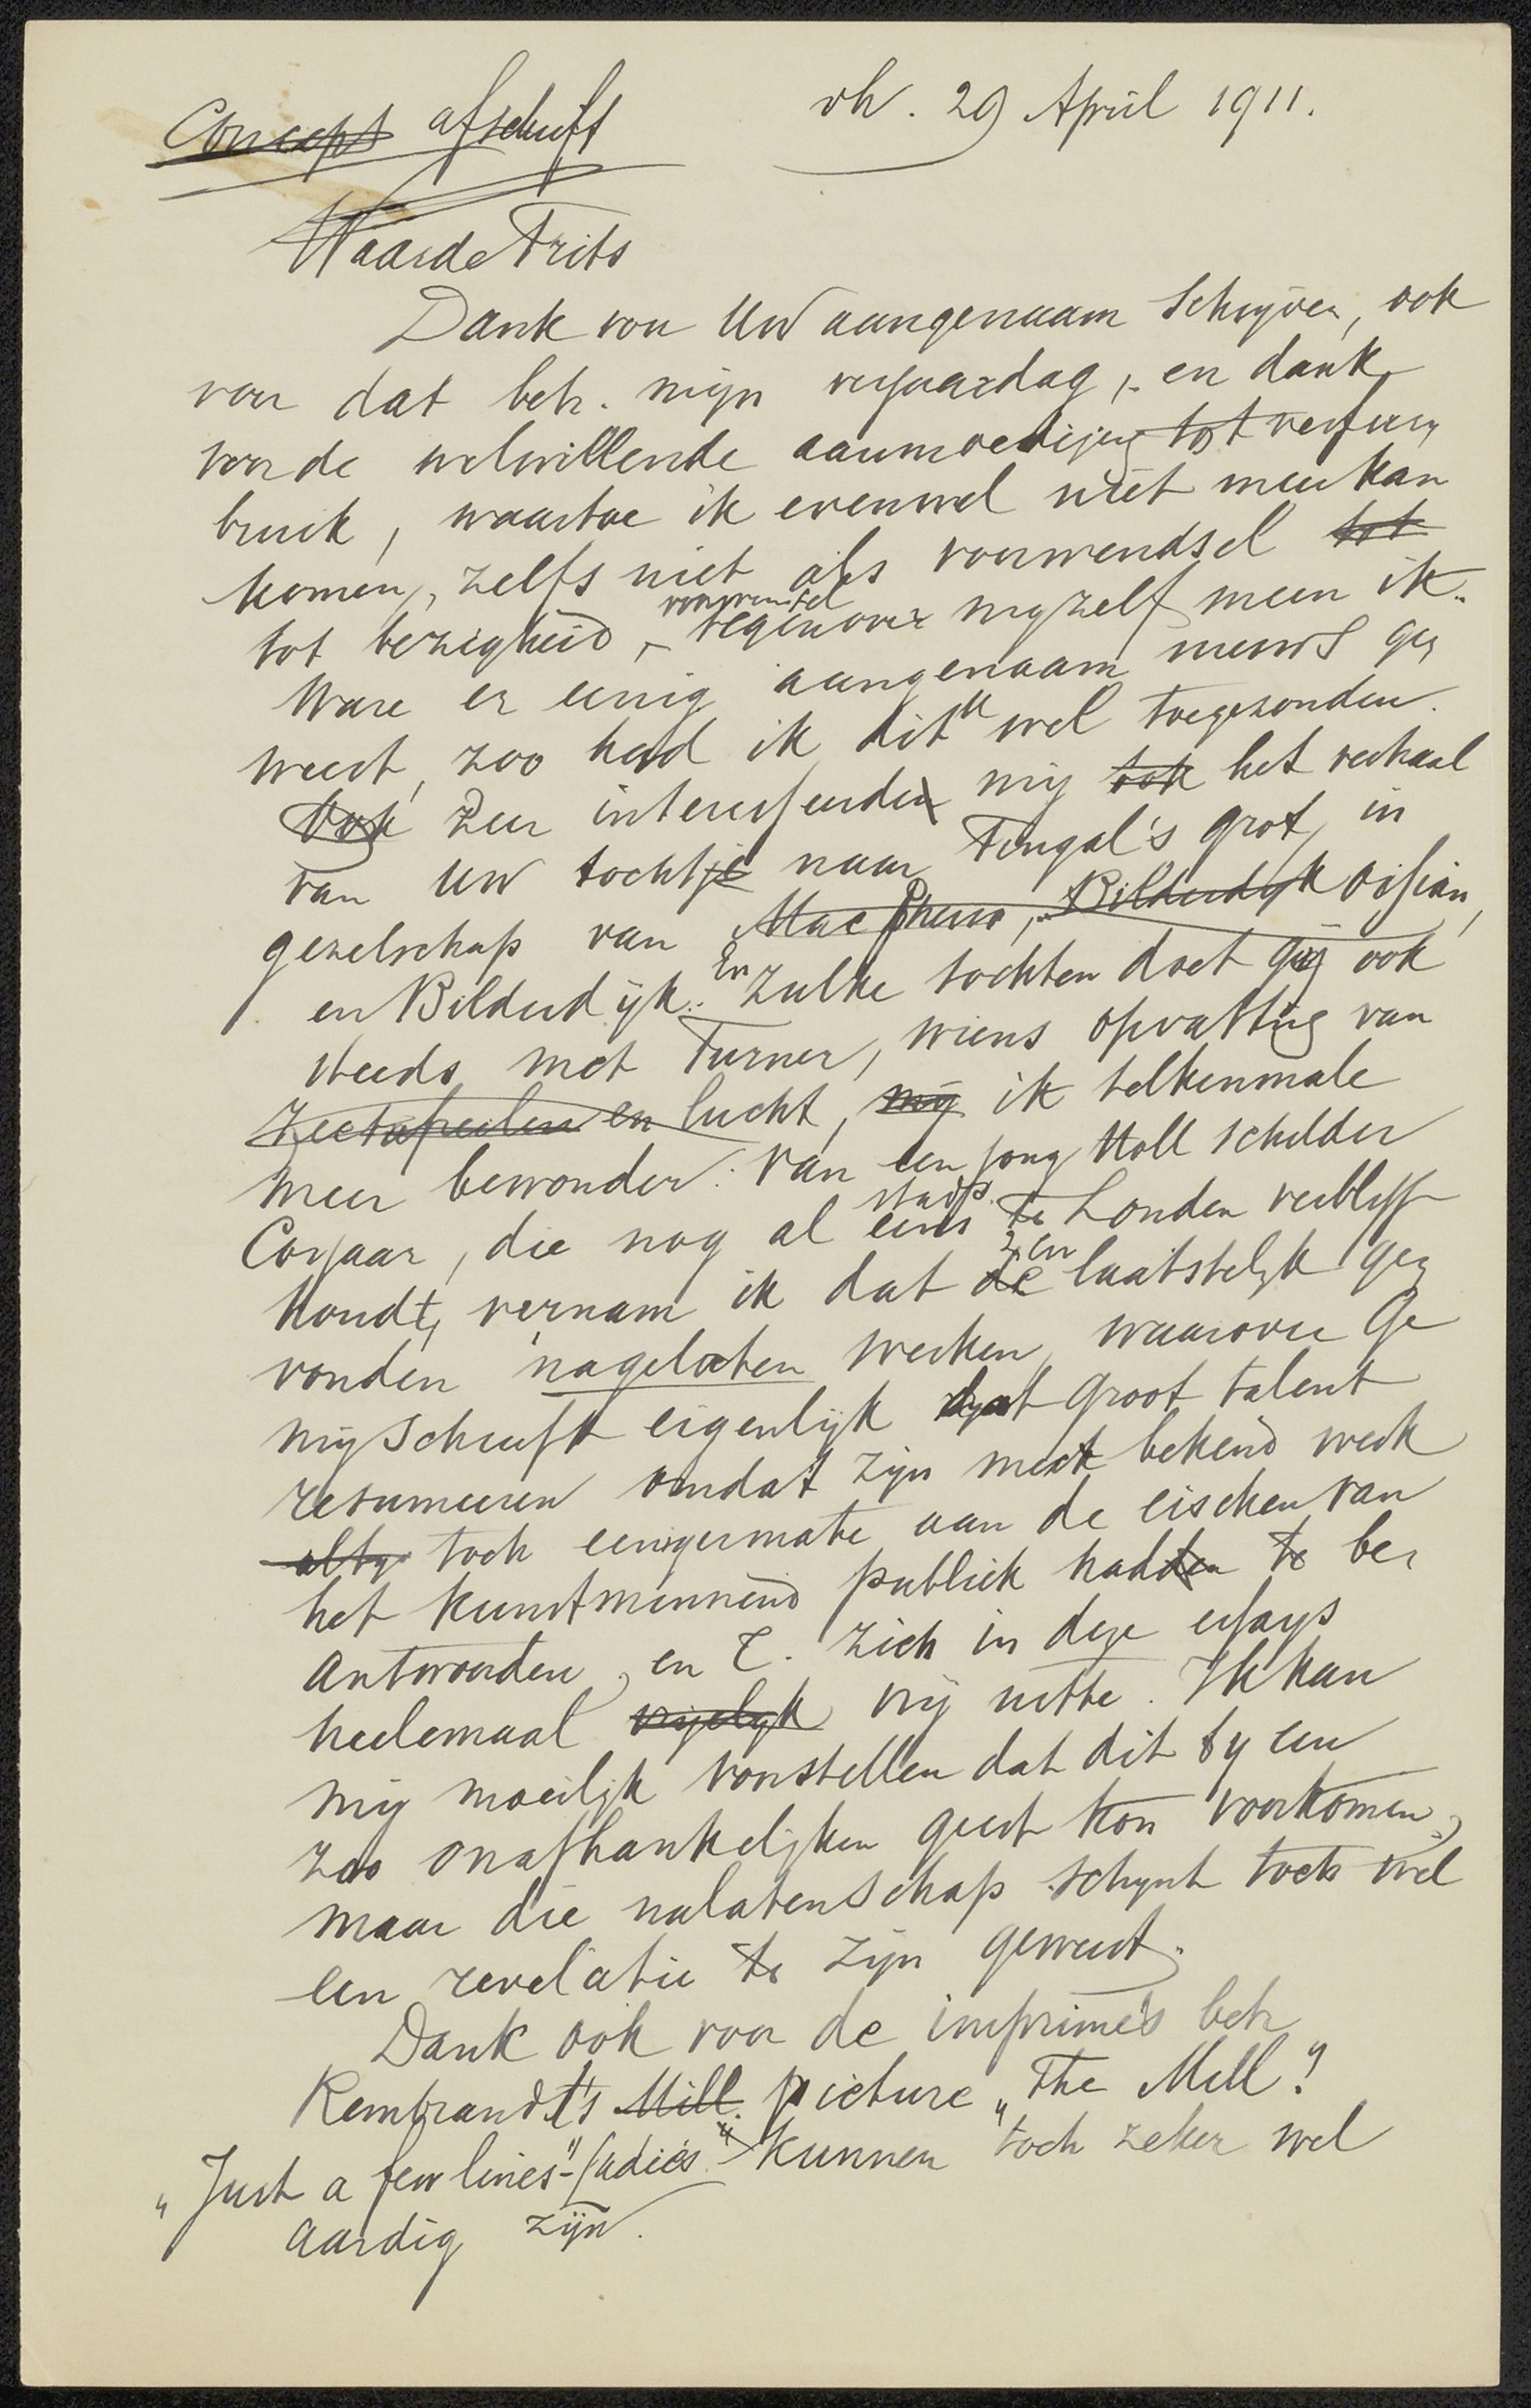 Concept afschrift
vh. 29 April 1911.
Waarde Frits
Dank voor Uw aangenaam Schrijven, ook
voor dat betr. mijn verjaardag, en dank
voor de welwillende aanmoediging tot verfver,
bruik, waartoe ik evenwel niet meer kan
komen, zelfs niet als voorwendsel tot
tot bezigheid, - voorwendsel tegenover mijzelf meen ik.
Ware er eenig aangenaam nieuws ge,
weest, zoo had ik dit U wel toegezonden.
Ook Zeer interesseerden mij ook het verhaal
van Uw tochtje naar Fingal's grot, in
gezelschap van MacPherso, Bilderdijk Ossian,
en Bilderdijk. En Zulke tochten doet gij ook
steeds met Turner, wiens opvatting van
en lucht, mij ik telkenmale
meer bewonder. Van een jong Holl schilder
Corjaar, die nog al eens te Londen verblijf
houdt, vernam ik dat de zen laatstelijk ge,
vonden nagelaten werken, waarover Ge
mij schrijft eigenlijk dat groot talent
resumeeren omdat zijn meest bekend werk
altijd toch eenigermate aan de eischen van
het kunstminnend publiek hadden te be,
antwoorden, en T. zich in deze essays
heelemaal vrijelijk vrij uitte. Ik kan
mij moeilijk voorstellen dat dit by een
zoo onafhankelijken geest kon voorkomen,
maar die nalatenschap schijnt toch wel
een revelatie te zijn geweest.
Dank ook voor de imprimés betr
Rembrandt's Mill. picture „The Mill".
„Just a few lines"-ladies" kunnen toch zeker wel
aardig zijn.